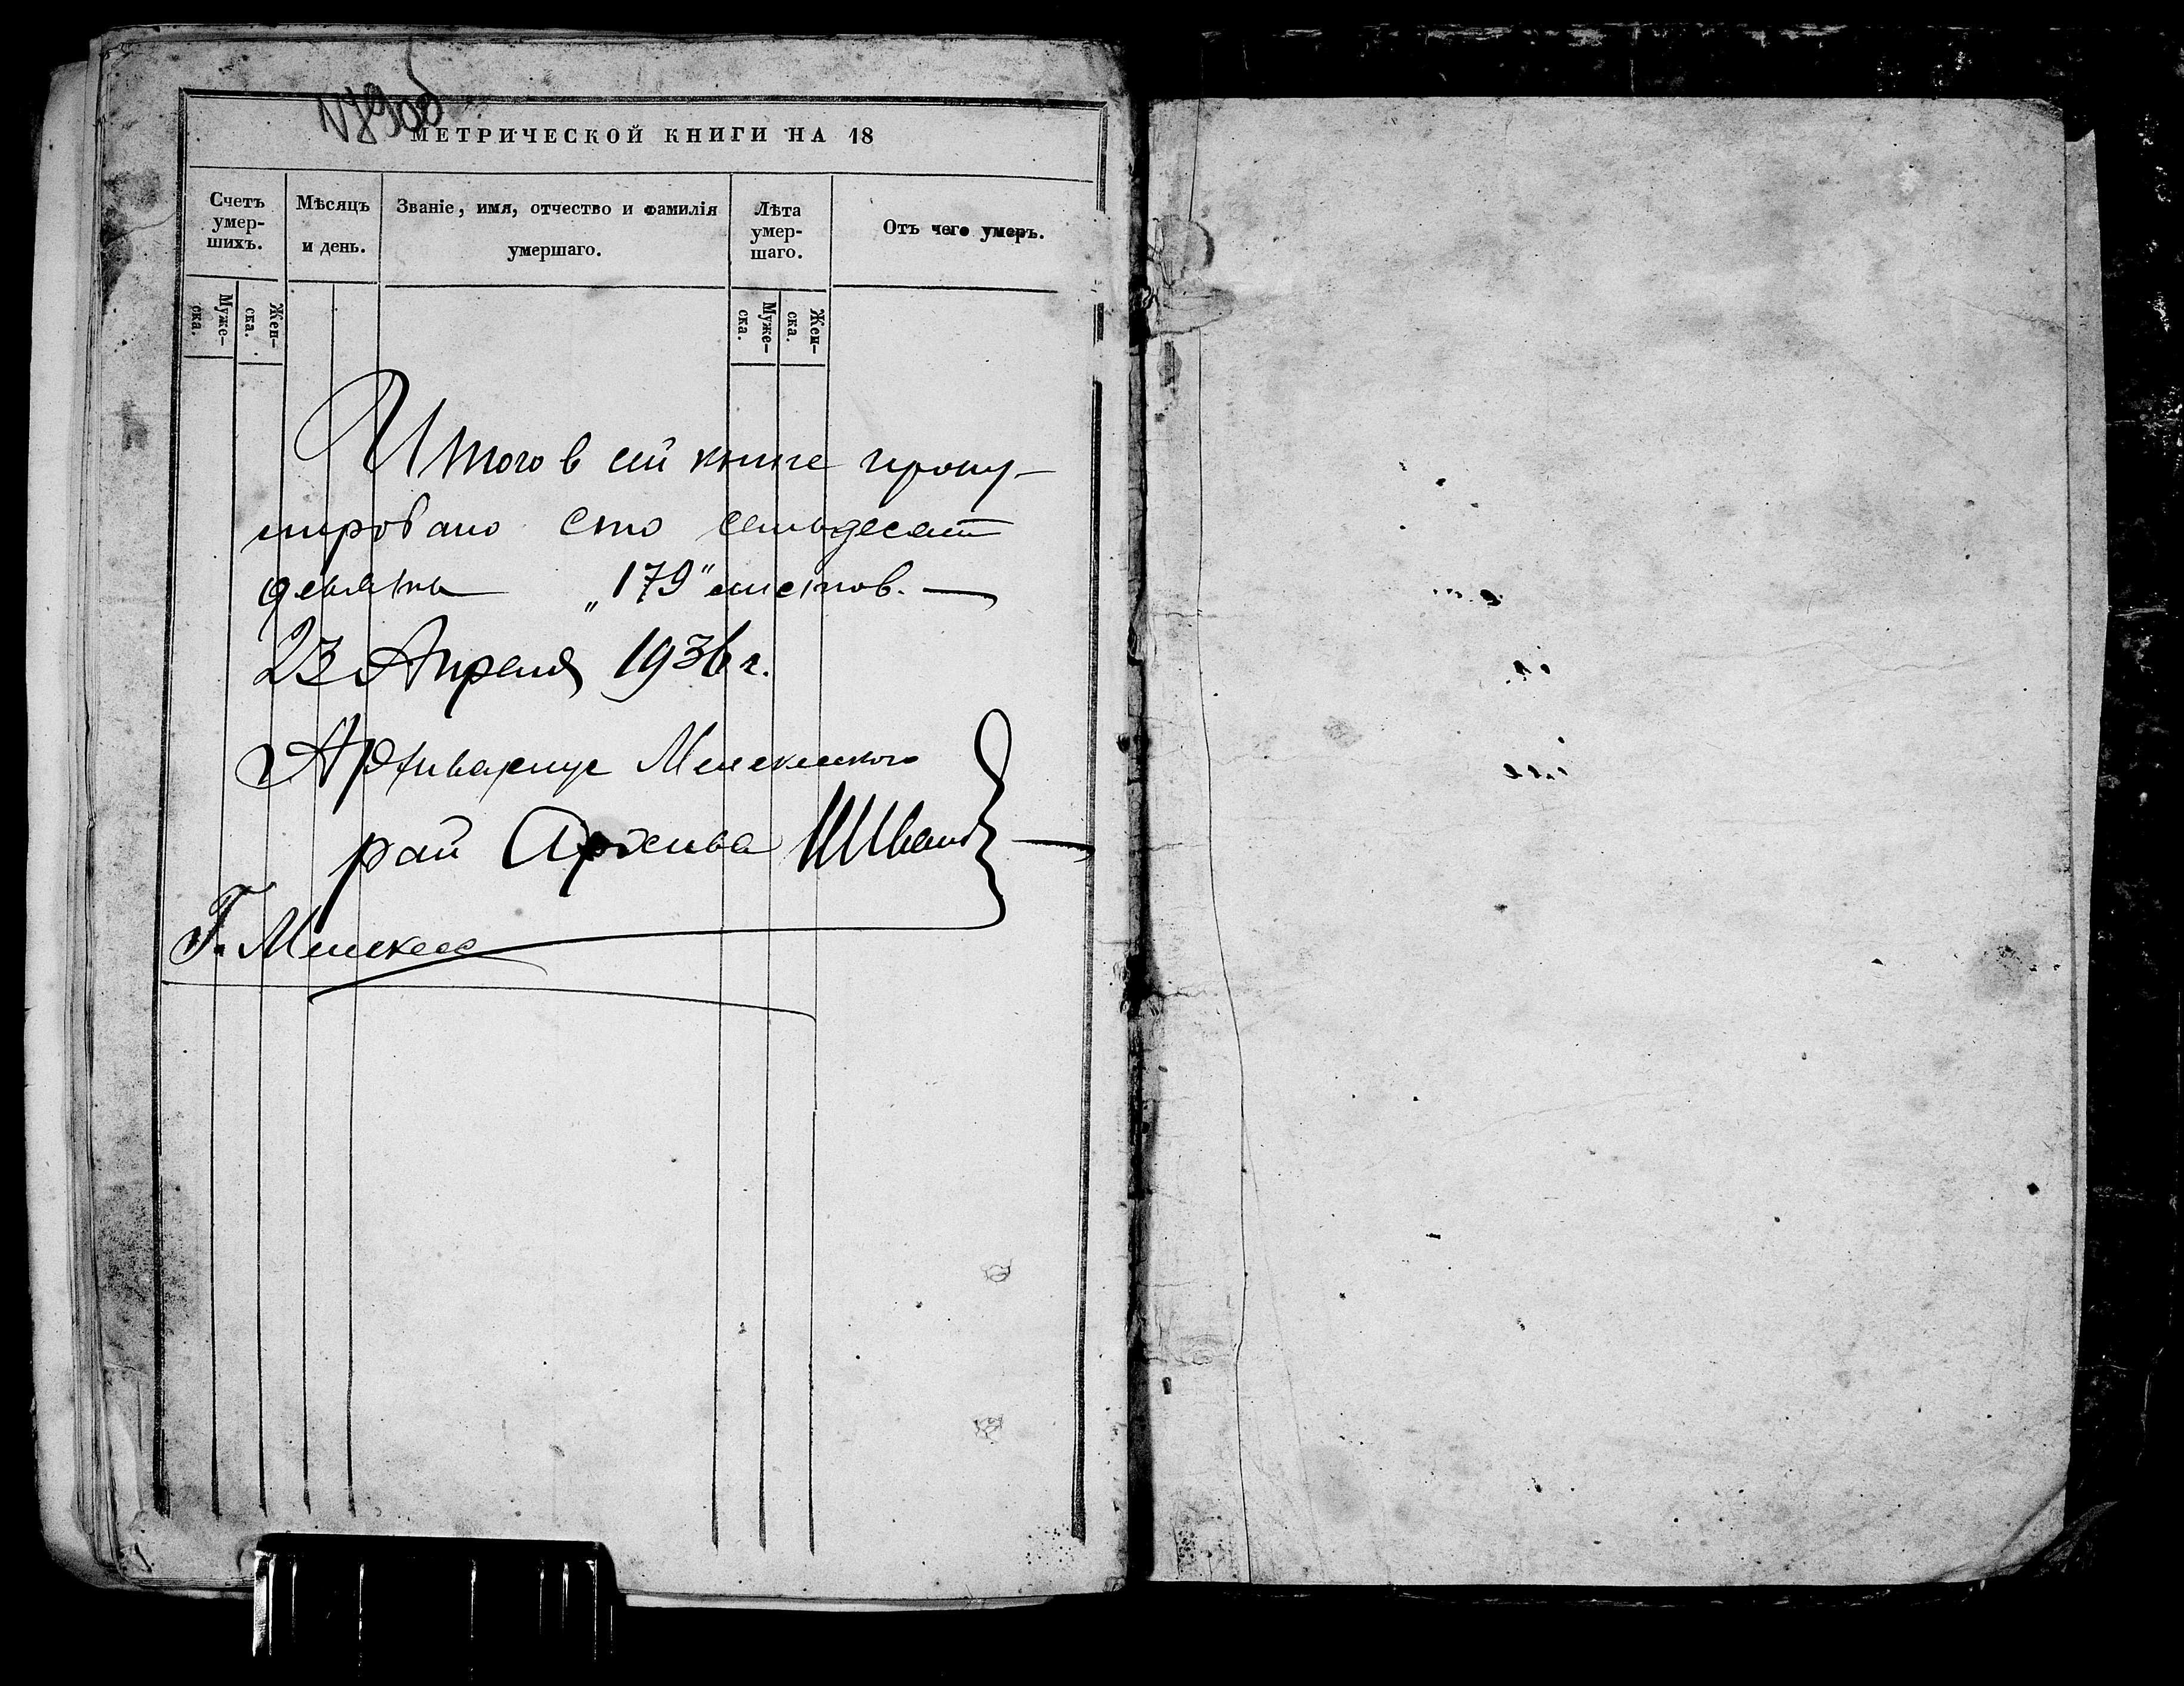 МЕТРИЧЕСКОЙ КНИГИ НА 18
Счетъ умер-шихъ.
Мѣсяцъ и день.
Званіе, имя, отчество и фамилія умершаго.
Лѣта умер-шаго.
Отъ чего умеръ.
Муже-ска.
Жен-ска.
Муже-ска.
Жен-ска.
Итого в сей книге прону-
мировано сто семьдесят
девять „179" листов.
23 Апреля 1936 г.
Архивариус Мелекесского
рай Архива
Г. Мелекесс